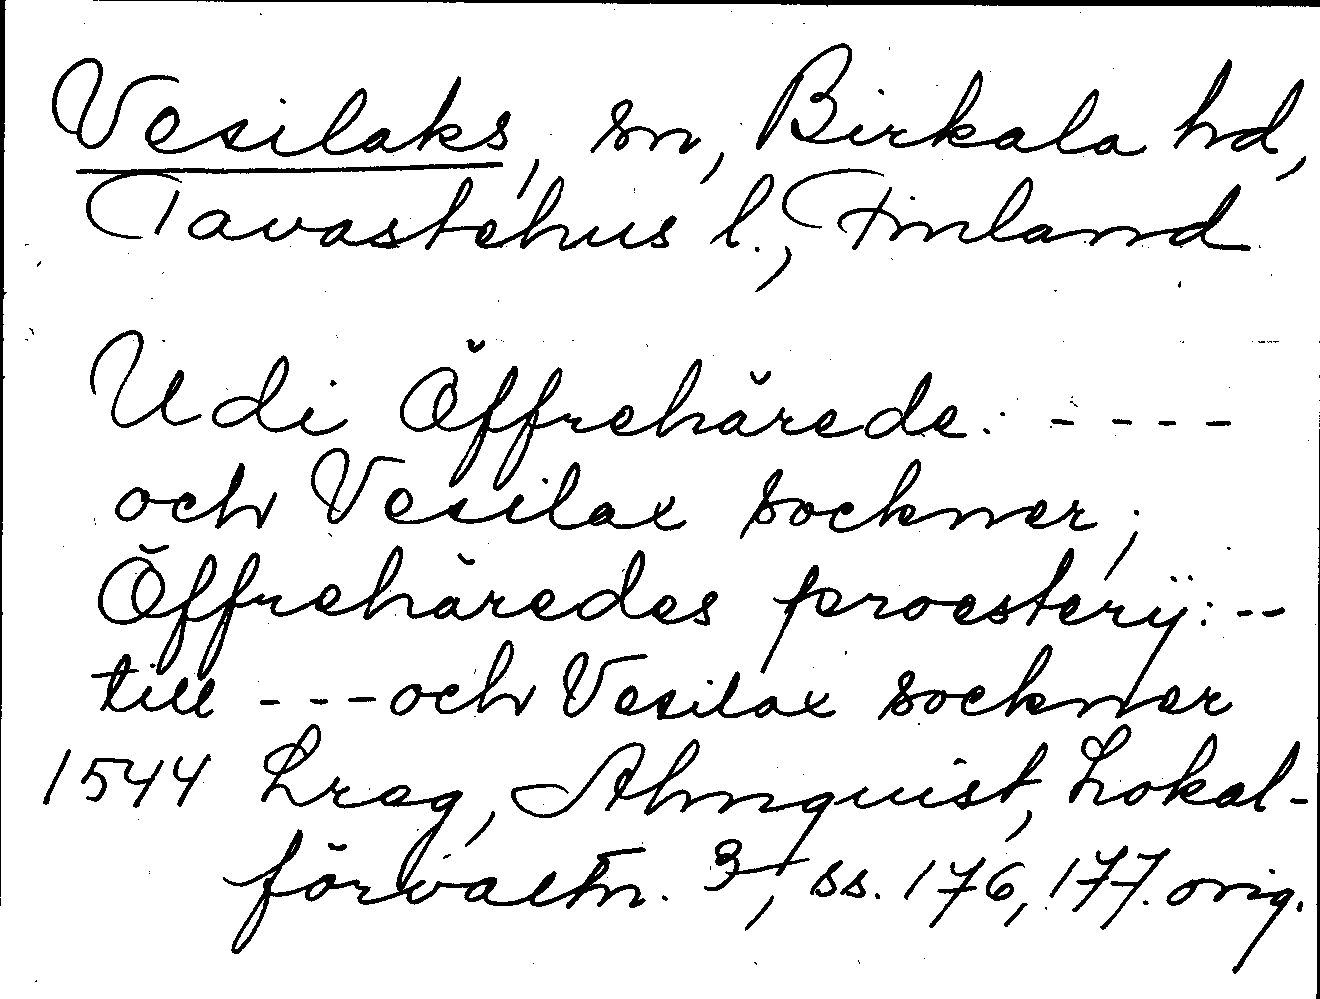 Vesilaks, sn, Birkala hd,
Tavastehus l., Finland
Udi Öffrehärede: ----
och Vesilax socknar;
Öffrehäredes proesterij: --
till --- och Vesilax socknar
1544 Lreg, Almquist, Lokal-
förvaltn. 3, ss. 176, 177. orig.